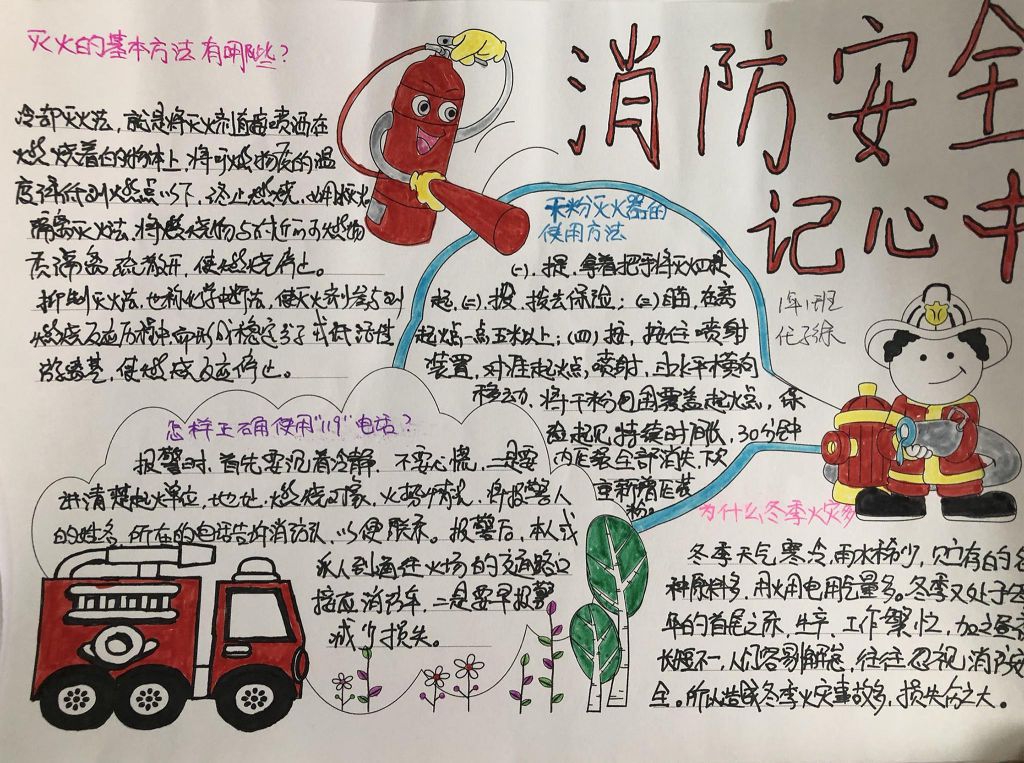 消防安全
记心中
灭火的基本方法有哪些?
冷却灭火法,就是将灭火剂直接喷洒在
燃烧着的物体上,将可燃物质的温
度降低到燃点以下,终止燃烧,
隔离灭火法,将燃烧物与附近的可燃物
质隔离或疏散开,使燃烧停止。
抑制灭火法,也称化学中断法,使灭火剂参与到
燃烧反应历程中,
使燃烧反应停止。
干粉灭火器的
使用方法
(一).提,拿着把手将灭火器提
起,(二).拔,拔去保险;(三)瞄,在离
起火点一点五米以上;(四)按,按住喷射
装置,对准起火点,喷射,由水平横向
移动,将干粉包围覆盖起火点,保
持续时间,30分钟
内压录全部消失,
重新
1年1班
怎样正确使用"119"电话?
报警时,首先要沉着冷静,不要心慌,一是要
讲清楚起火单位,地址,燃烧对象,火场情况,将报警人
的姓名,所在的电话告诉消防队,以便联系。报警后,本人或
派人到通往火场的交通路口
接应消防车,二是要早报警
减少损失。
为什么冬季火灾多
冬季天气寒冷,雨水稀少,贮存的各
种原料多,用火用电用气量多。冬季又处于全
年的首尾之际,生产、工作繁忙,加之昼夜
长短不一,人们容易懈怠,往往忽视消防安
全。所以造成冬季火灾事故多,损失大。